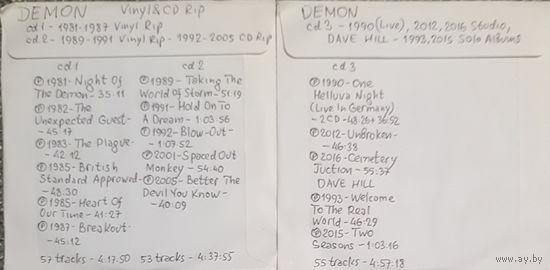 DEMON Vinyl&CD Rip
cd1 - 1981-1987 Vinyl Rip
cd2 - 1989-1991 Vinyl Rip - 1992-2005 CD Rip
cd1
℗1981-Night Of
The Demon-35:11
℗1982-The
Unexpected Guest-
-45:17
℗1983-The Plague-
-42:12
℗1985-British
Standard Approved-
-48:30
℗1985-Heart Of
Our Time-41:27
℗1987-Breakout-
-45:12
57 tracks - 4:17:50
cd2
℗1989-Taking The
World of Storm-51:19
℗1991-Hold On To
A Dream-1:03:56
℗1992-Blow-Out-
-1:07:52
℗2001-Spaced Out
Monkey-54:40
℗2005-Better The
Devil You Know-
-40:09
53 tracks - 4:37:55
DEMON
cd3-1990(Live), 2012, 2016 Studio,
DAVE HILL-1993,2015 Solo Albums
cd3
℗1990-One
Helluva Night
(Live In Germany)
-2CD-48:26+36:52
℗2012-Unbroken-
-46:38
℗2016-Cemetery
Juction-55:37
DAVE HILL
℗1993-Welcome
To The Real
World-46:29
℗2015-Two
Seasons-1:03:16
55 tracks - 4:57:18
www.ay.by